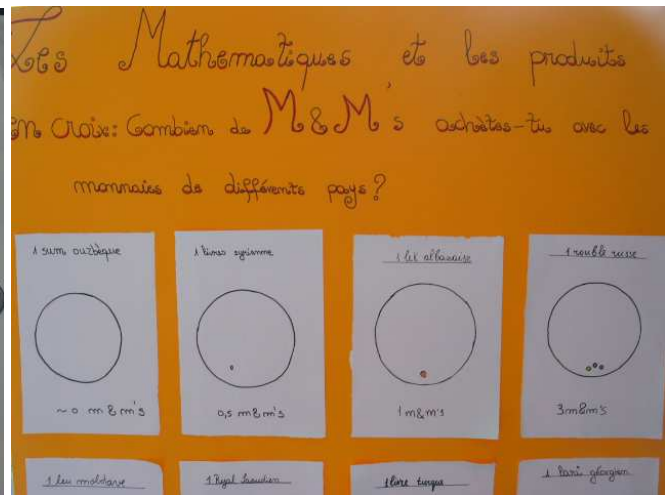 Les Mathématiques et les produits
en croix: Combien de M&M's achètes-tu avec les
monnaies de différents pays?
1 sum ouzbèque
~0 m&m's
1 livres syrienne
0,5 m&m's
1 lek albanaise
1 m&m's
1 rouble russe
3 m&m's
1 leu moldave
1 Riyal Saoudien
1 livre turque
1 lari géorgien